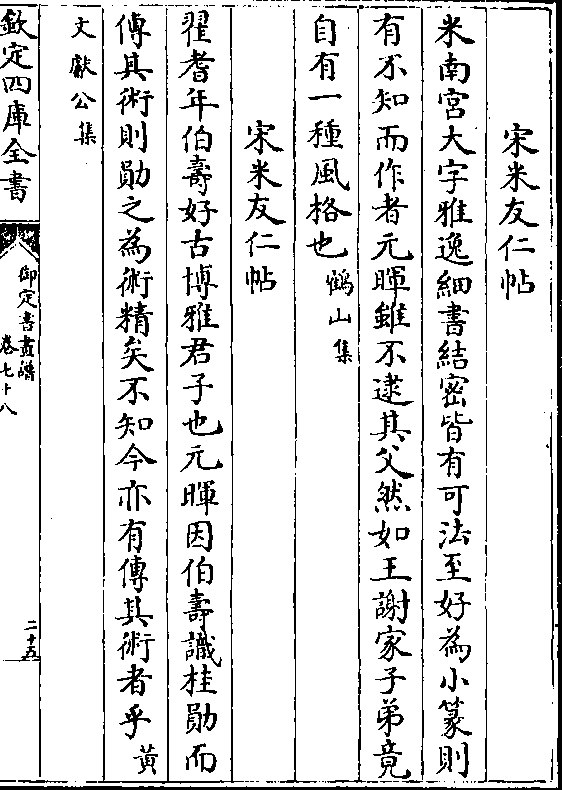 宋米友仁帖
米南宮大字雅逸細書結密皆有可法至好為小篆則
有不知而作者元暉雖不逮其父然如王謝家子弟竟
自有一種風格也鶴山集
宋米友仁帖
翟耆年伯壽好古博雅君子也元暉因伯壽識桂勛而
傳其術則勛之為術精矣不知今亦有傳其術者乎黃
文獻公集
欽定四庫全書
御定書畫譜
卷七十八
二十五